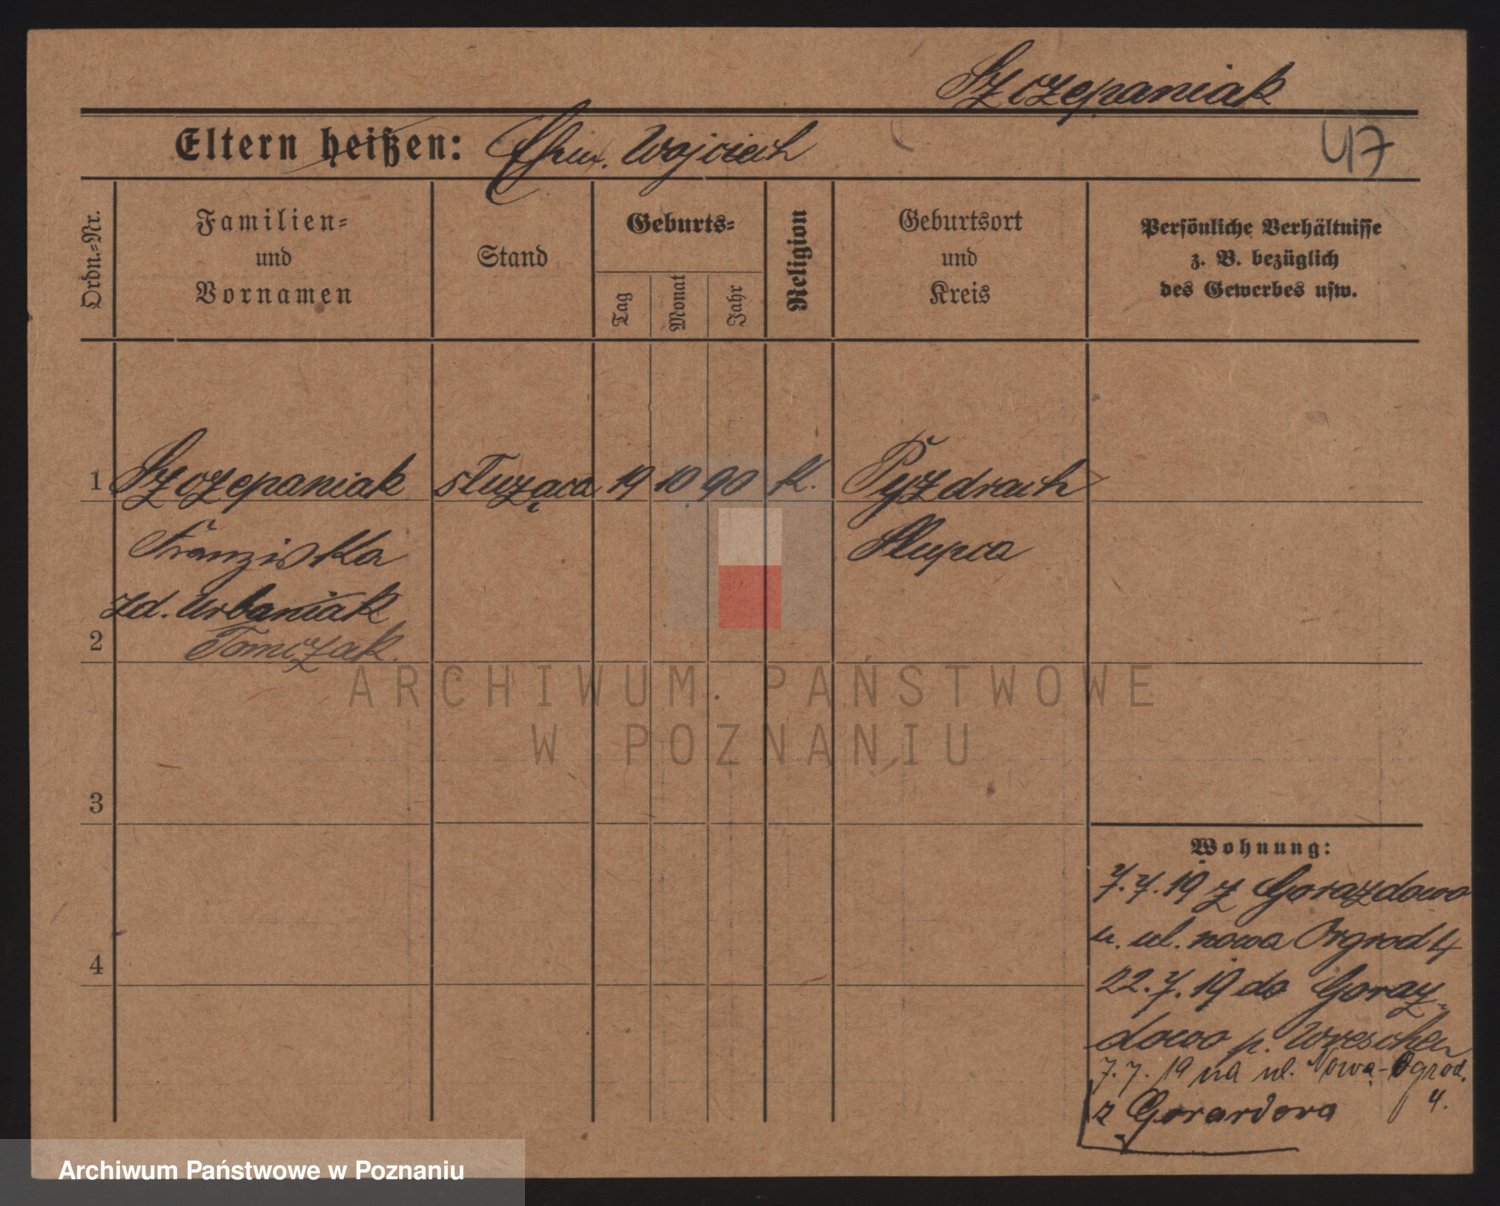 Szczepaniak
Eltern heißen: Ehem. Wojciech
47
Ordn.-Nr.
Familien-
und
Vornamen
Stand
Geburts-
Tag
Monat
Jahr
Religion
Geburtsort
und
Kreis
Persönliche Verhältnisse
z. B. bezüglich
des Gewerbes usw.
1 Szczepaniak służąca 19 10 90 K. Pyzdrach
Franziska Słupca
zd. Urbaniak
2 Tomczak.
ARCHIWUM PAŃSTWOWE
W POZNANIU
3
4
Wohnung:
7.7.19 z Gorazdowo
u. ul. nowa Orgrod 4
22.7.19 do Goraz-
dowo p. Wreschen
7.7.19 na ul. Nowa-Ogrod.
4.
z Gorardova
Archiwum Państwowe w Poznaniu